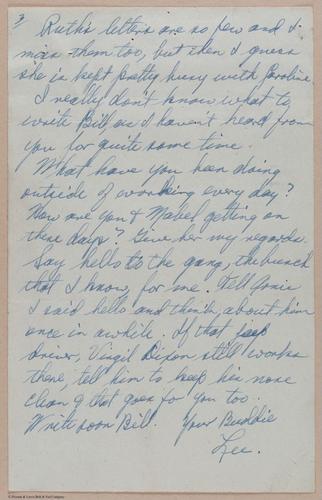 3
Ruth's letters are so few and I
miss them too, but then I guess
she is kept pretty busy with Caroline.
I really don't know what to
write Bill, as I haven't heard from
you for quite some time.
What have you been doing
outside of working every day?
How are you & Mabel getting on
these days? Give her my regards.
Say hello to the gang, the bunch
that I know, for me. Tell
I said hello and think about him
once in awhile. If that jeep
driver, Virgil Dixon still works
there, tell him to keep his nose
clean & that goes for you too.
Write soon Bill. Your Buddie
Lee.